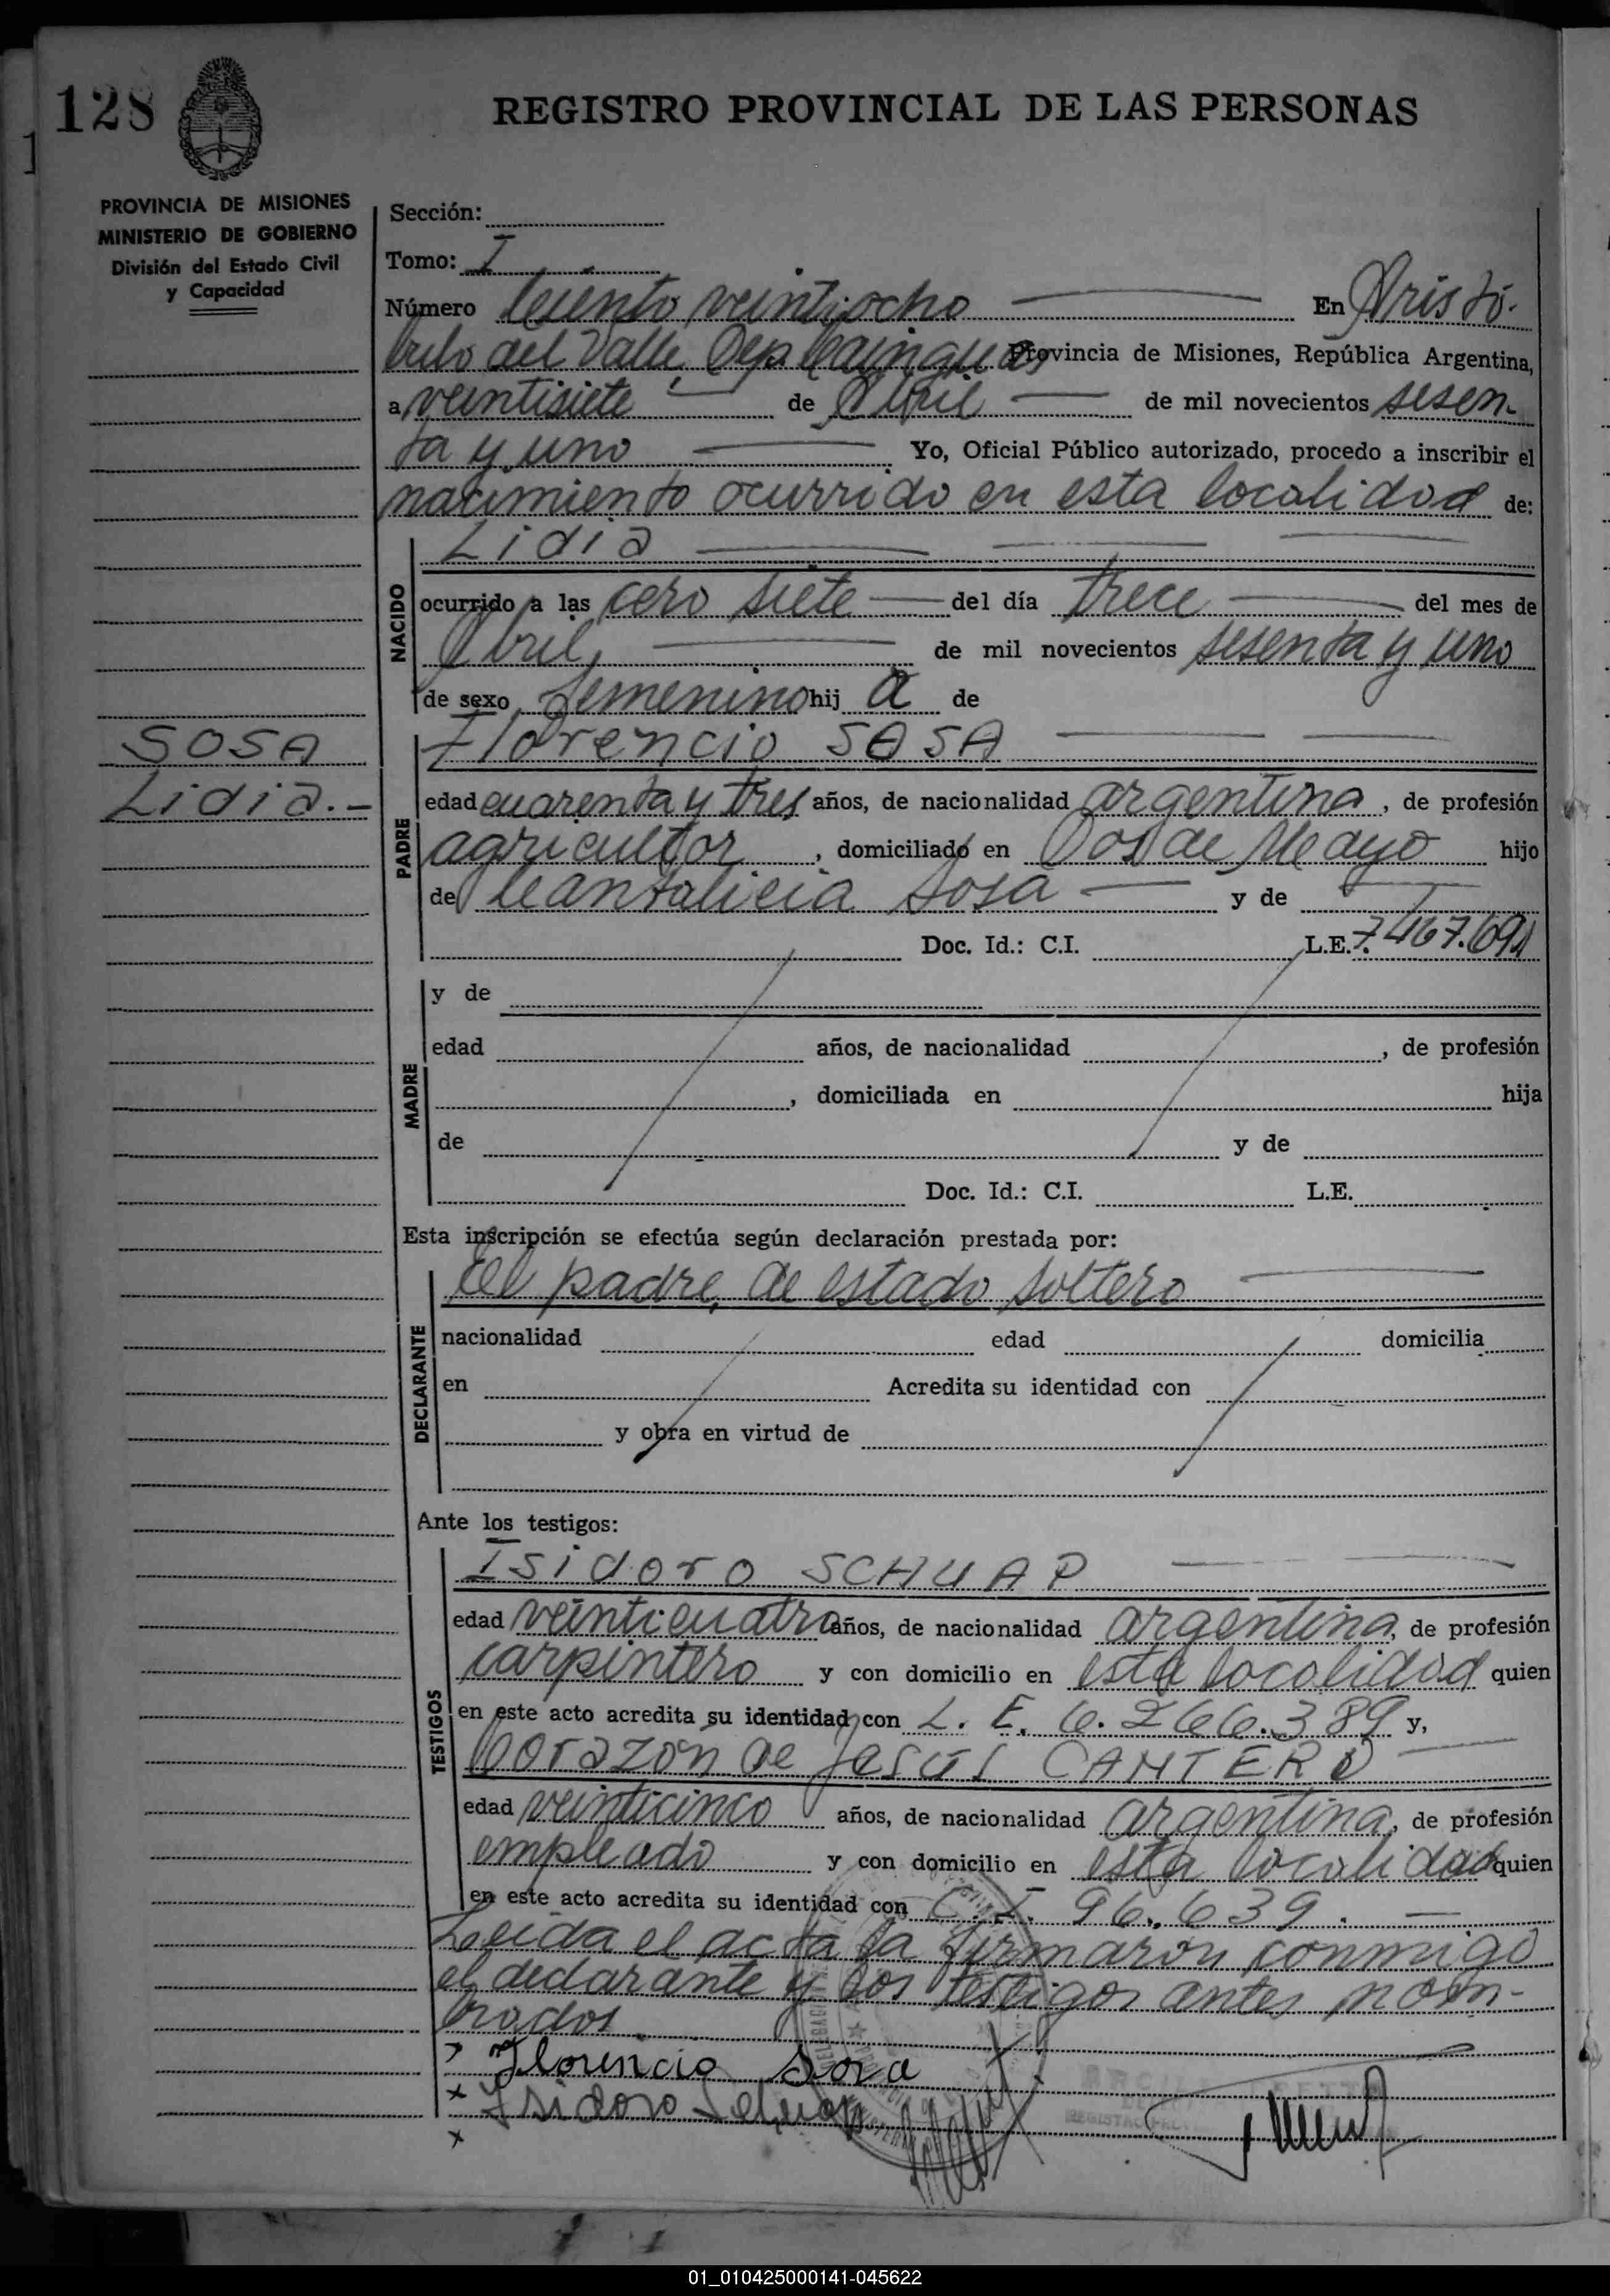 128
REGISTRO PROVINCIAL DE LAS PERSONAS
PROVINCIA DE MISIONES
MINISTERIO DE GOBIERNO
División del Estado Civil
y Capacidad
Sección:
Tomo: I
Número Ciento veintiocho En Aristó-
bulo del Valle, Dep Cainguás Provincia de Misiones, República Argentina,
a veintisiete de Abril de mil novecientos sesen-
ta y uno Yo, Oficial Público autorizado, procedo a inscribir el
nacimiento ocurrido en esta localidad de:
Lidia
NACIDO
ocurrido a las cero siete del día trece del mes de
Abril, de mil novecientos sesenta y uno
de sexo femenino hij a de
SOSA
Lidia.-
Florencio SOSA
PADRE
edad cuarenta y tres años, de nacionalidad argentina, de profesión
agricultor, domiciliado en Dos de Mayo hijo
de Cantalicia Sosa y de
Doc. Id.: C.I. L.E. 7.467.691
MADRE
y de
edad años, de nacionalidad , de profesión
, domiciliada en hija
de y de
Doc. Id.: C.I. L.E.
Esta inscripción se efectúa según declaración prestada por:
El padre, de estado soltero
DECLARANTE
nacionalidad edad domicilia
en Acredita su identidad con
y obra en virtud de
Ante los testigos:
Isidoro SCHUAP
TESTIGOS
edad veinticuatro años, de nacionalidad argentina, de profesión
carpintero y con domicilio en esta localidad quien
en este acto acredita su identidad con L. E. 6.266.389 y,
Corazon de Jesús CANTERO
edad veinticinco años, de nacionalidad argentina, de profesión
empleado y con domicilio en esta localidad quien
en este acto acredita su identidad con C. I. 96.639.
Leida el acta la firmaron conmigo
el declarante y los testigos antes nom-
brados.
x Florencio Sosa
x Isidoro Schuap
x
01_010425000141-045622